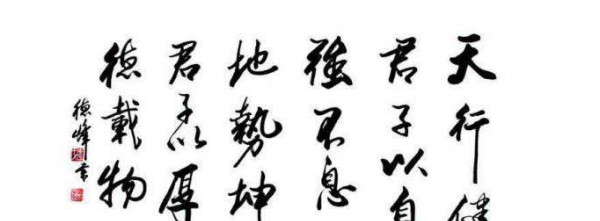 天行健
君子以自
强不息
地势坤
君子以厚
德载物
德峰书